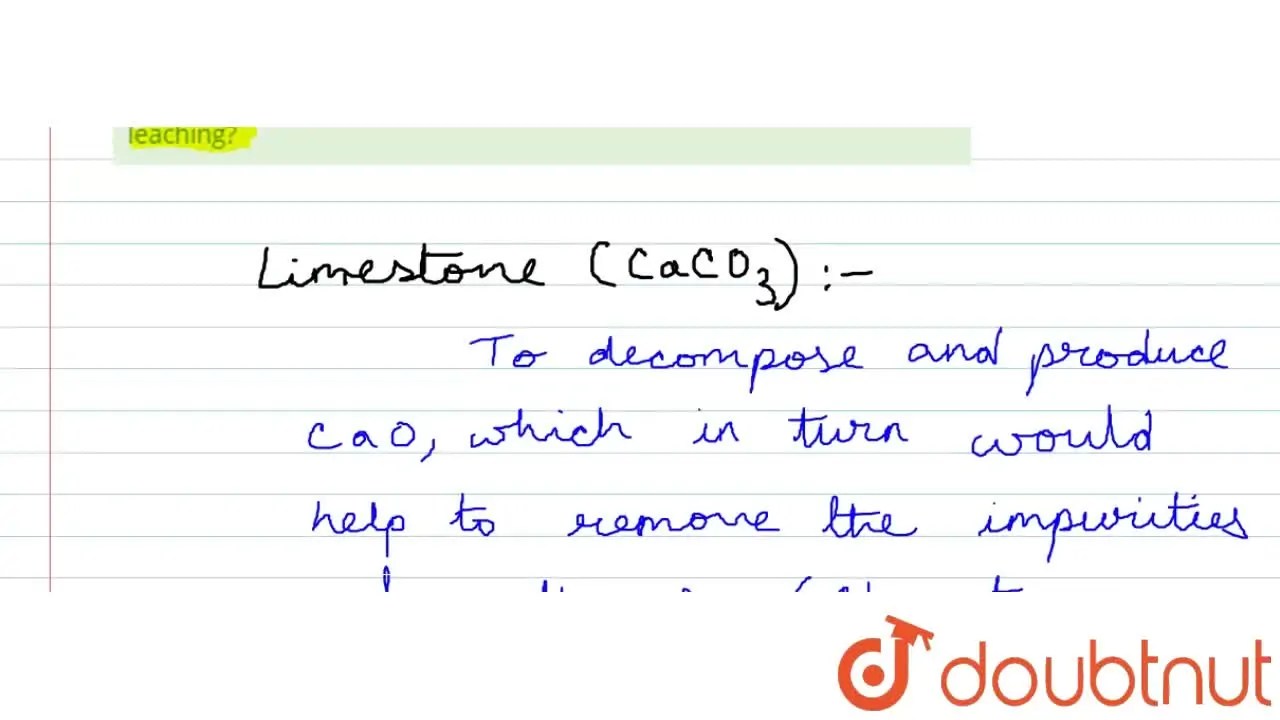 leaching?
Limestone (CaCO3) :-
To decompose and produce
CaO, which in turn would
help to remove the impurities
doubtnut